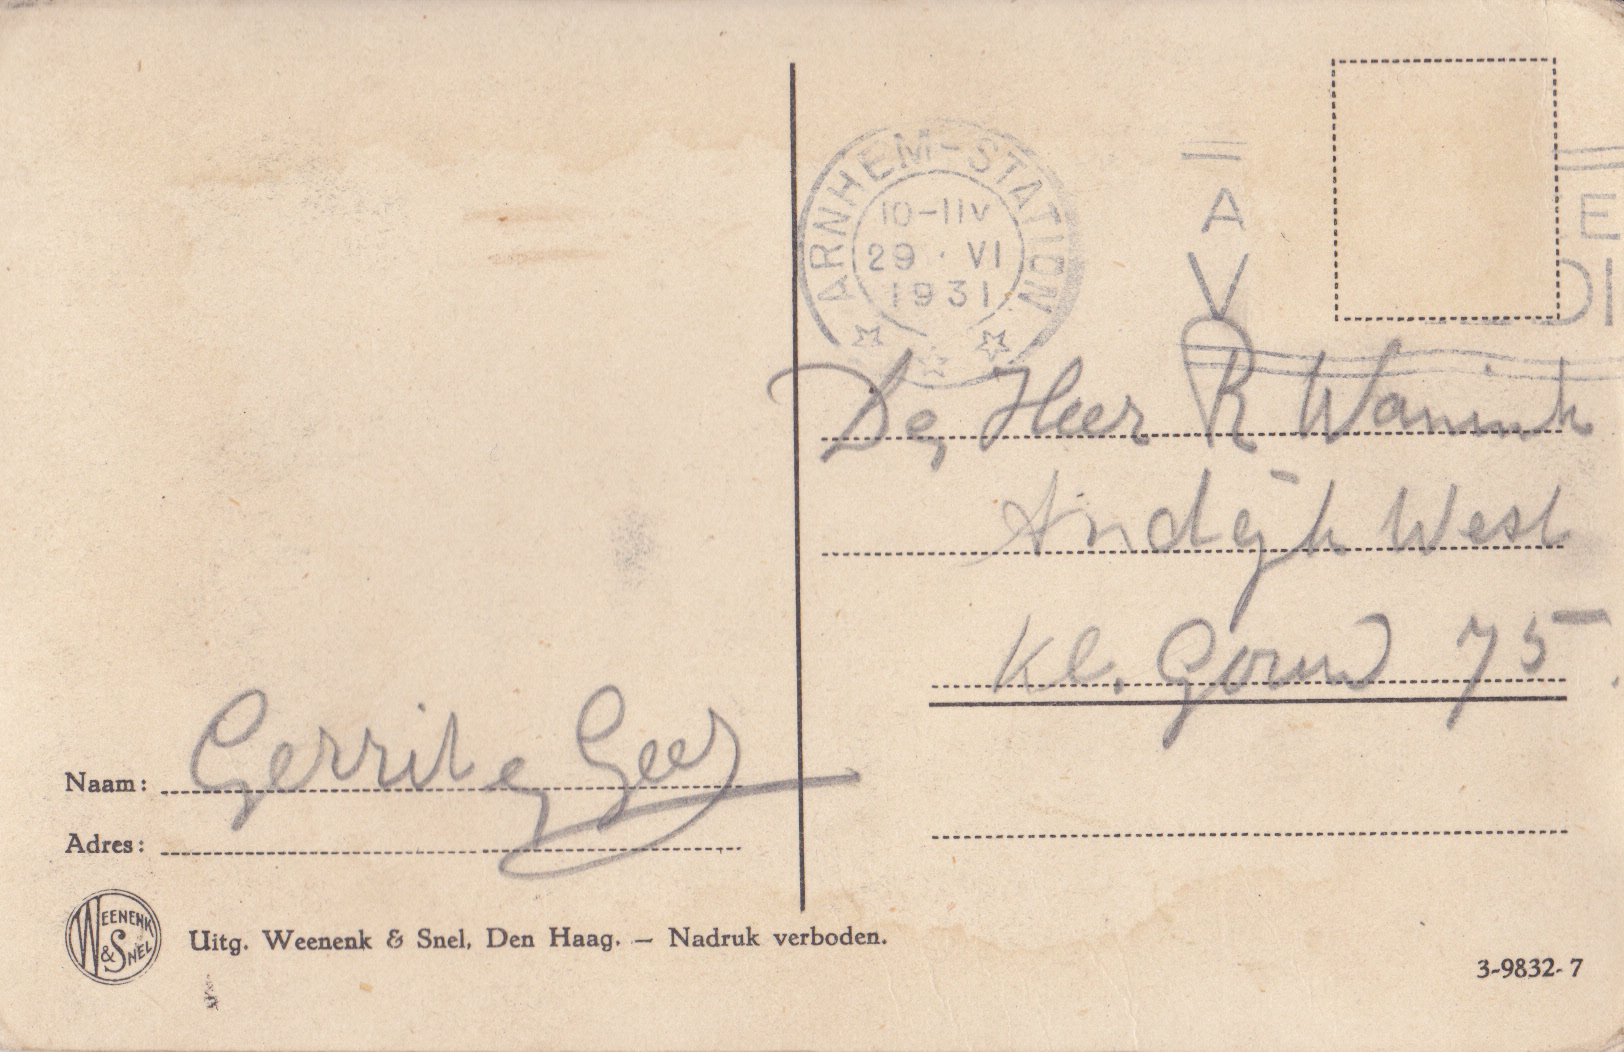 ARNHEM-STATION
10-11V
29 · VI
1931
A
V
E
DI
De Heer R Wanink
Andijk West
Kl. Gouw 75
Naam: Gerrit e Gees
Adres:
WEENENK
& SNEL
Uitg. Weenenk & Snel, Den Haag. — Nadruk verboden.
3-9832-7